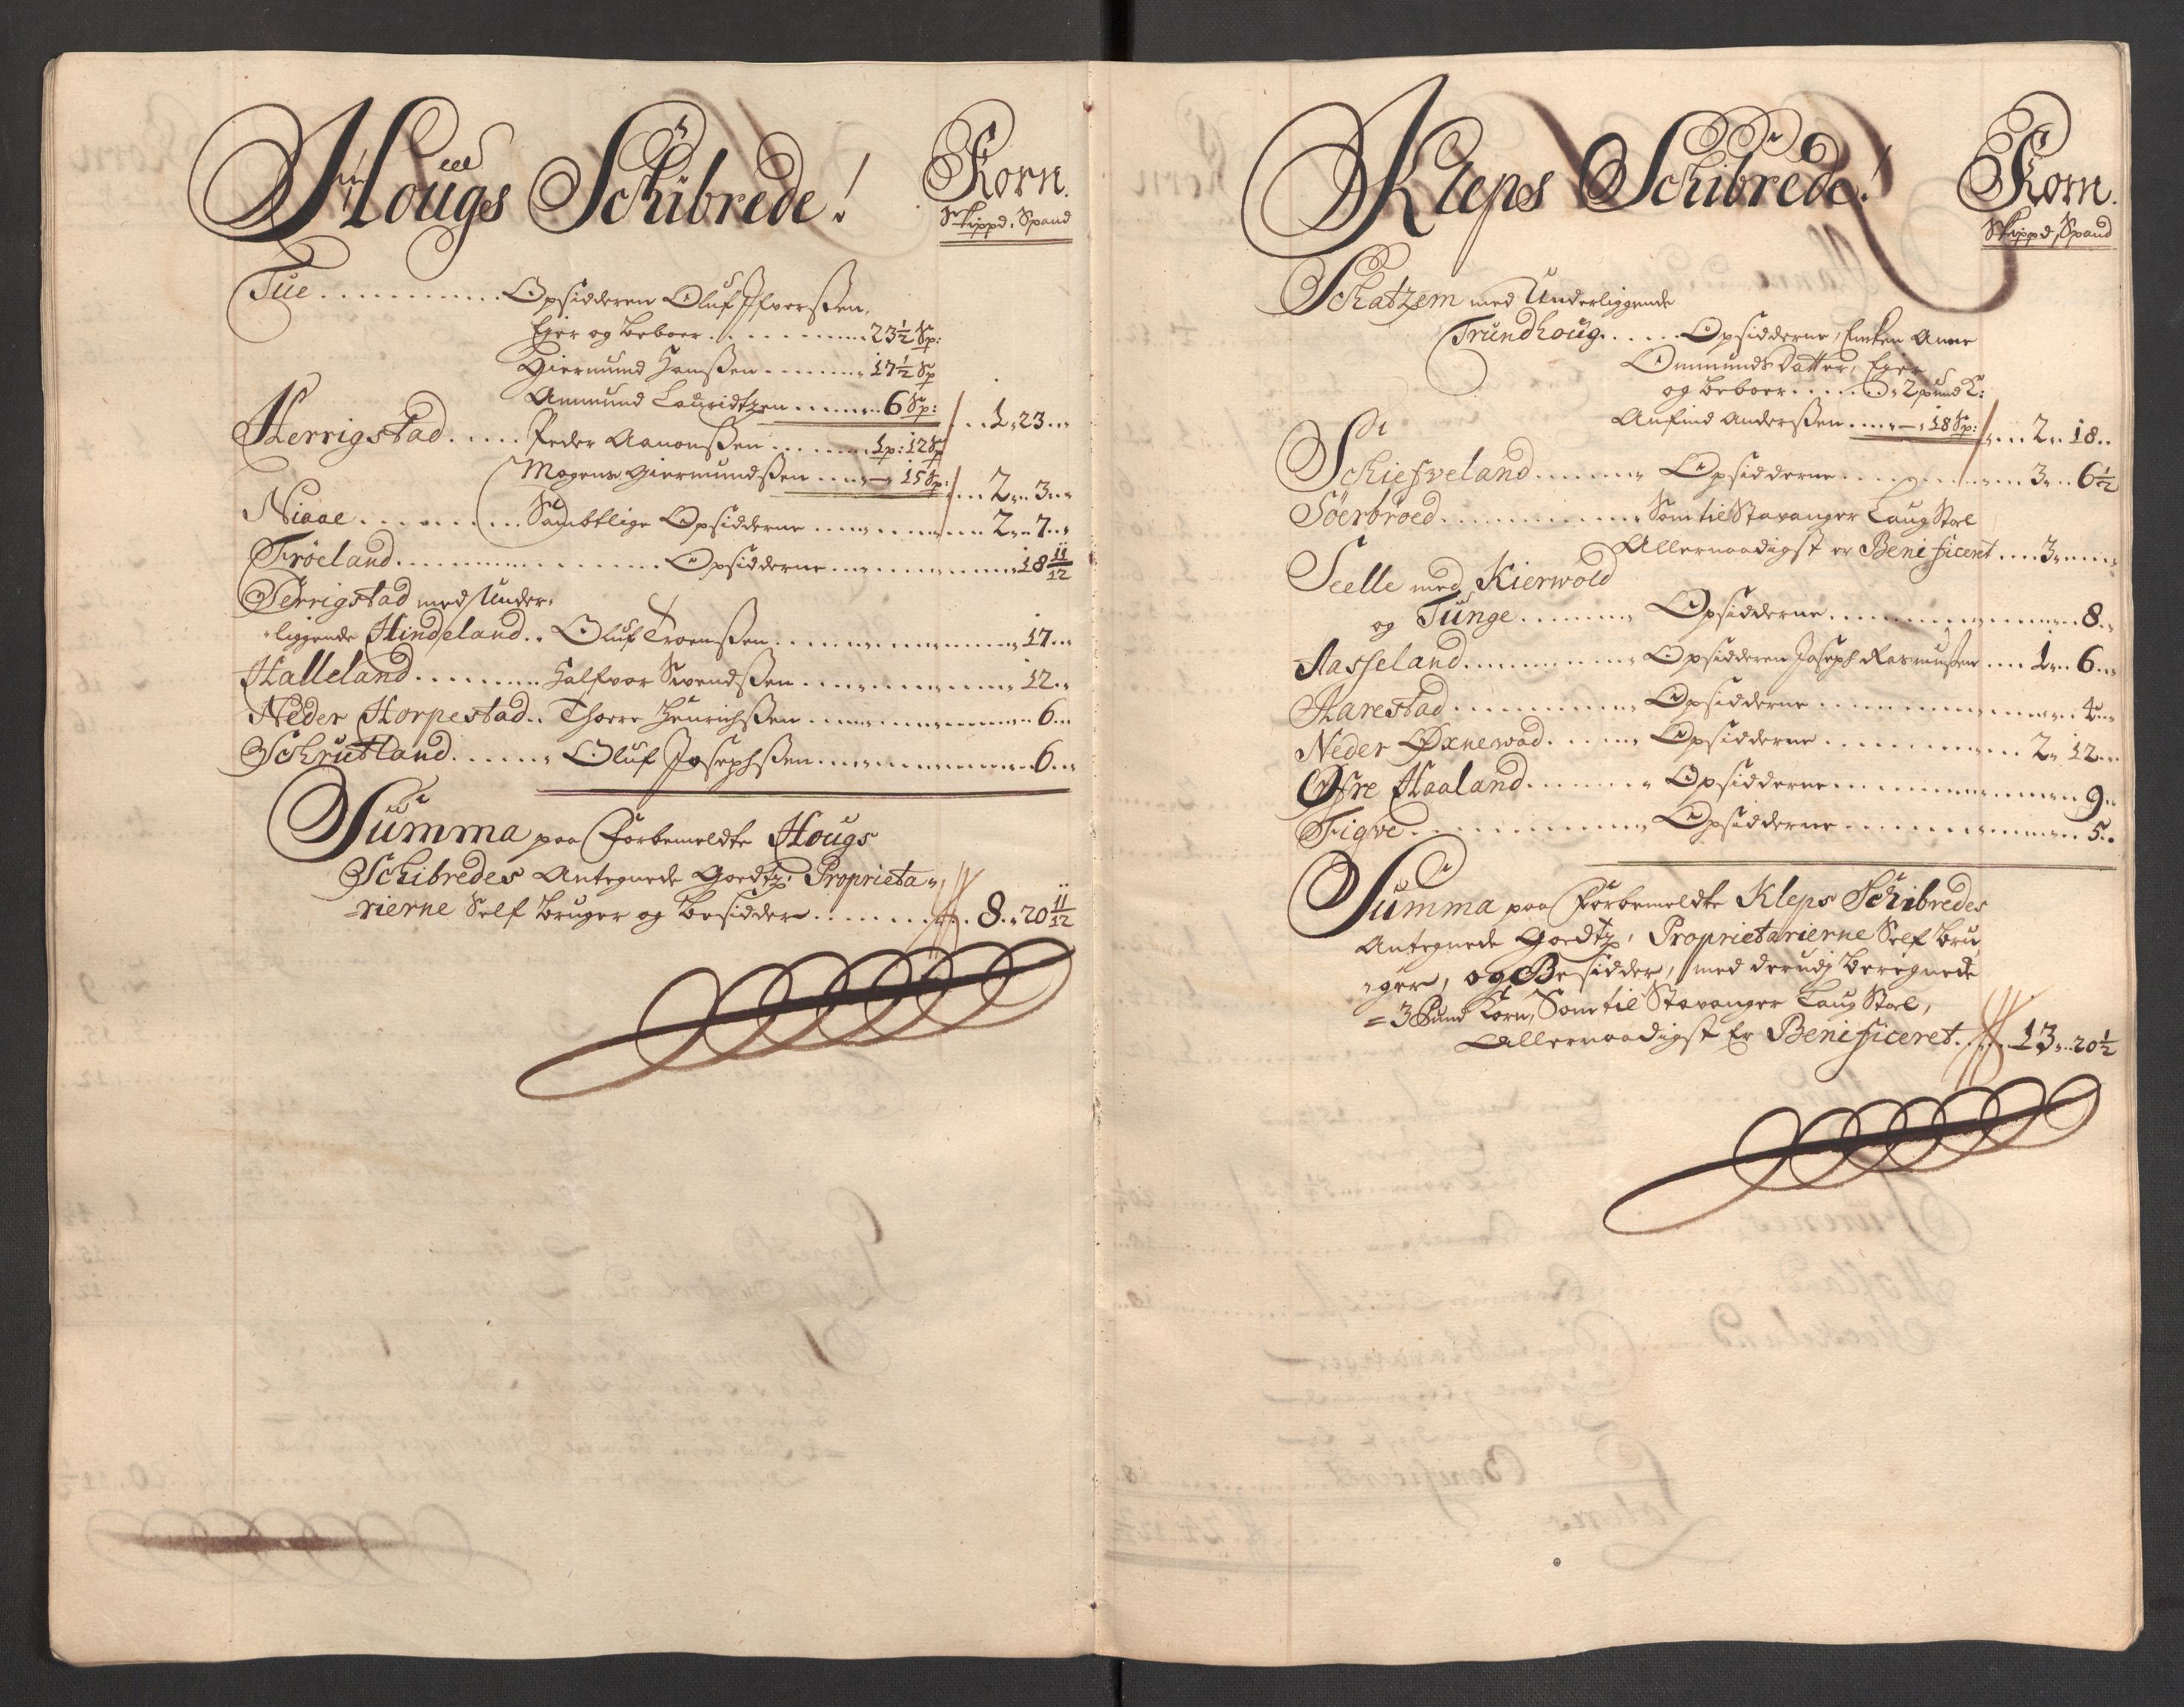 Hougs Schibrede!
Korn.
Skippd, Spand
Tüe .......... Opsidderen Oluf Ifverßen,
Ejer og beboer .......... 23½ Sp:
Giermund Hanßen ........ 17½ Sp
Ammund Lauridtzen ....... 6 Sp: ... 1. 23...
Herrigstad ..... Peder Aanonßen ....... 1p: 12 Sp
Mogens Giermundßen ...— 15 Sp: ... 2. 3...
Niaae .......... Sambtlige Opsidderne .......... 2. 7...
Frøeland .......... Opsidderne .......... 18 11/12
Terrigstad med Under-
liggende Hindeland .. Oluf Troenßen .......... 17...
Halleland ........ Halfvor Svendßen .......... 12..
Neder Horpestad .. Thorre Henrichßen .......... 6...
Schrutland ...... Oluf Josephßen .......... 6...
Summa paa Forbemeldte Hougs
Schibredes Antegnede Goedtz, Proprieta-
-rierne Self bruger og besidder ........ 8. 20 11/12
Kleps Schibrede!
Korn.
Skippd, Spand
Schatzem med Underliggende
Trundhoug ..... Opsidderne, Enken Anne
Ommunds Datter, Ejer
og beboer ..... 2 pund K:
Anfind Anderßen ....—. 18 Sp: ... 2. 18..
Schiefveland ...... Opsidderne .......... 3. 6½
Söerbröed .......... Som til Stavanger Laug Stoel
Allernaadigst er Benificeret ... 3...
Seelle med Kierwold
og Tunge ....... Opsidderne .......... 8..
Aasseland .......... Opsidderen Joseph Rasmußen ... 1. 6...
Harestad .......... Opsidderne .......... 4...
Neder Øxnewad ...... Opsidderne .......... 2. 12...
Øfre Haaland ....... Opsidderne .......... 9..
Figve .......... Opsidderne .......... 5..
Summa paa Forbemeldte Kleps Schibredes
Antegnede Goedtz, Proprietarierne Self bru
-ger, og Besidder, med derudj beregnede
= 3 Pund Korn, Som til Stavanger Laug Stoel,
Allernaadigst Er Benificeret ..... 13. 20½